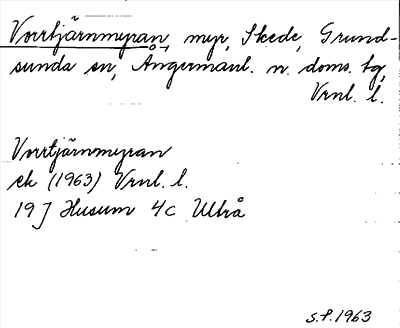 Vorrtjärnmyran, myr, Skede, Grund-
sunda sn, Ångermanl. n. doms. tg,
Vrnl. l.
Vorrtjärnmyran
ek (1963) Vrnl. l.
19 J Husum 4c Ulvå
S.F. 1963